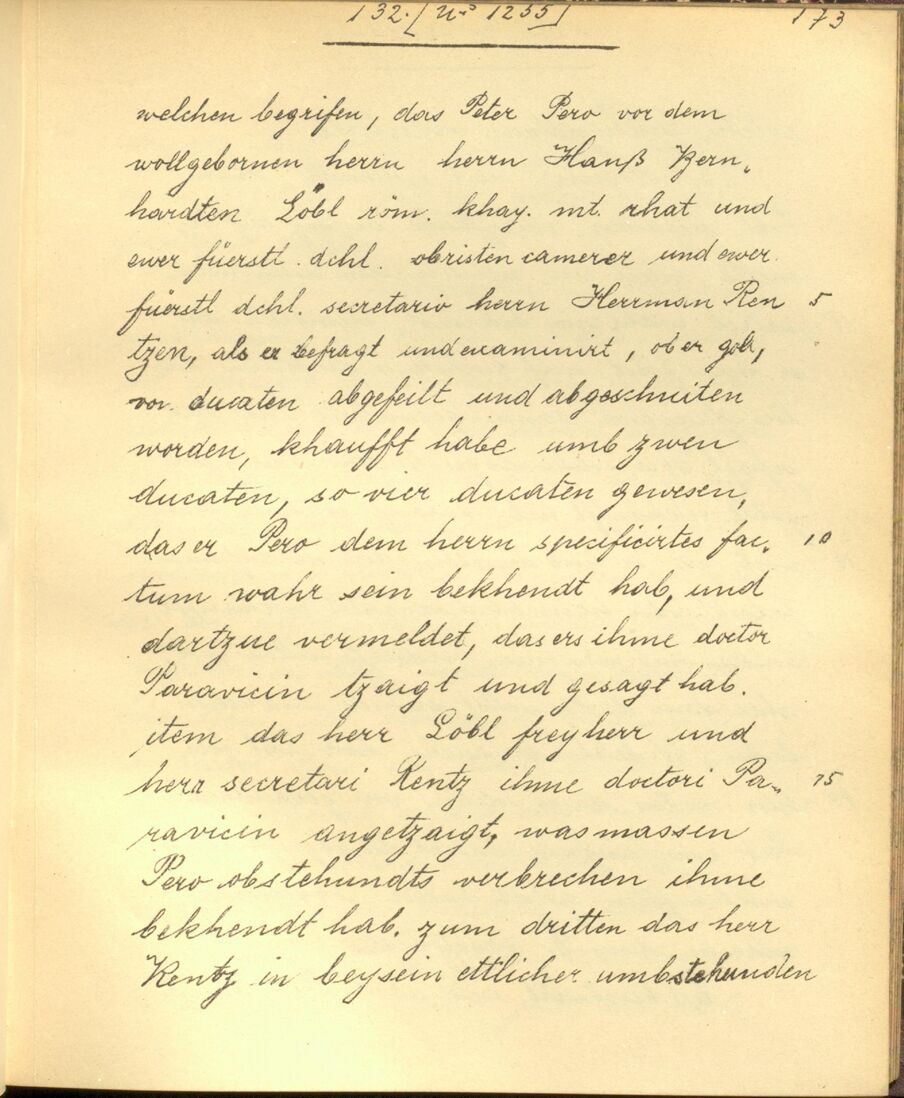 132. [No 1255] 173
welchen begrifen, das Peter Pero vor dem
wollgebornen herrn herrn Hanß Bern„
hardten Löbl röm. khay. mt. rhat und
ewer füerstl. dchl. obristen camerer und ewer
füerstl dchl. secretario herrn Herrman Ren 5
tzen, als er befragt und examinirt, ob er golt,
von ducaten abgefeilt und abgeschniten
worden, khaufft habe umb zwen
ducaten, so vier ducaten gewesen,
das er Pero dem herrn specificirtes fac„ 10
tum wahr sein bekhendt hab, und
dartzue vermeldet, das ers ihme doctor
Paravicin tzaigt und gesagt hab.
item das herr Löbl freyherr und
herr secretari Rentz ihme doctori Pa„ 15
ravicin angetzaigt, was massen
Pero obstehundts verbrechen ihme
bekhendt hab. zum dritten das herr
Rentz in beysein ettlicher umbstehunden